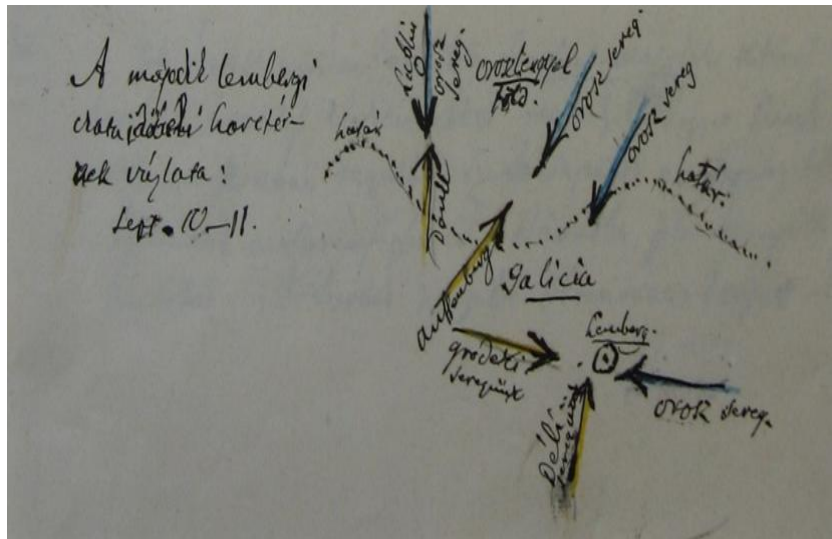 A második lembergi
csata előtti haretér-
nek vázlata:
Sept. 10–11.
Lublini
orosz
sereg.
oroszlengyel
föld.
orosz sereg.
orosz sereg
határ
határ.
Dankl
Auffenberg
Galicia
Lemberg.
gródeki
seregünk
orosz sereg.
Déli
seregünk